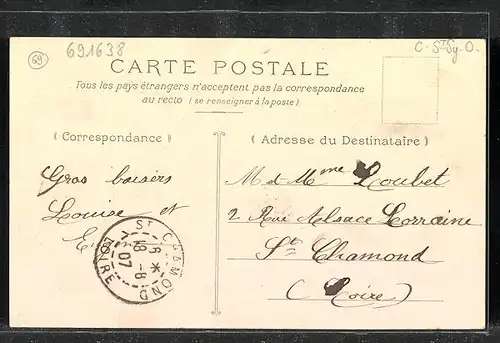 69
691638
C-St-Sy-O.
CARTE POSTALE
Tous les pays étrangers n'acceptent pas la correspondance
au recto (se renseigner à la poste)
(Correspondance)
(Adresse du Destinataire)
Gros baisers
Louise et
M et Mme Loubet
2 Rue Alsace Lorraine
St Chamond
(Loire)
ST CHAMOND
18 -8
07
LOIRE